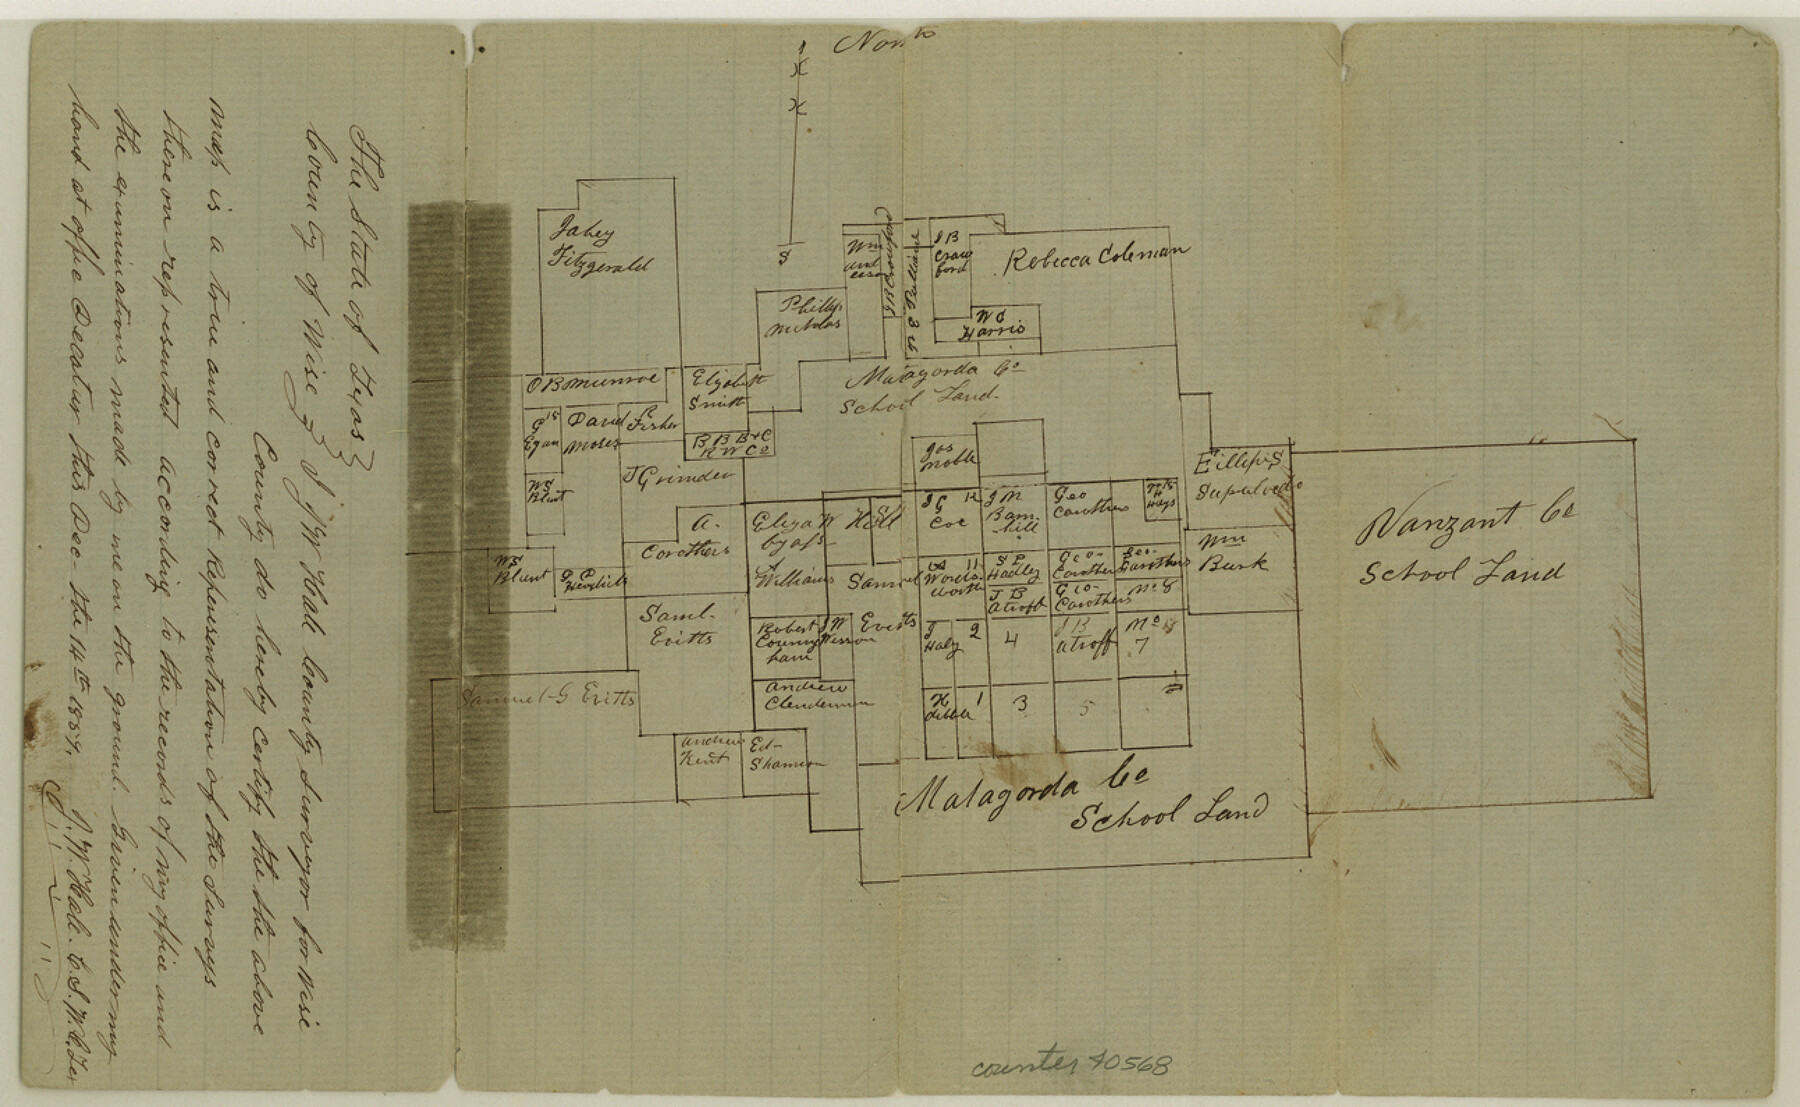 North
S
The State of Texas }
County of Wise } I J W Hale County Surveyor for Wise
County do hereby certify the the above
map is a true and correct Representation of the Surveys
thereon represented according to the records of my office and
the examinations made by me on the ground. Given under my
hand at office Decatur this Dec- the 14th
J. W. Hale. C.S.W.C.Tex
Jabey
Fitzgerald
Wm
And
erson
J B
Craw
ford
Rebecca Coleman
Phillip
Nicholas
W S
Harris
O B Munroe
Elizabeth
Smith
Matagorda Co
School Land.
G 15
Egan
David
Moses
Fisher
B B B & C
R W Co
J Grinder
Jas
Moble
W S
Blunt
A.
Corothers
Eliza W
Hill
J G 12
Coe
J M
Barn
hill
Geo
Carothers
Hays
Sepulveda
Vanzant Co
School Land
Wm
Burk
W S
Blunt
Williams
Samuel
Evitts
11
Words
worth
S P
Hadley
J B
Atroff
Geo-
Carothers
Geo-
Carothers
Geo-
Carothers
No 8
Saml-
Evitts
Robert
Cuning
ham
J W
J
Haly
2
4
J B
Atroff
No
7
Samuel G Evitts
Andrew
Andrew
Kent
Ed-
Shannon
1
3
5
Matagorda Co
School Land
counter 40568